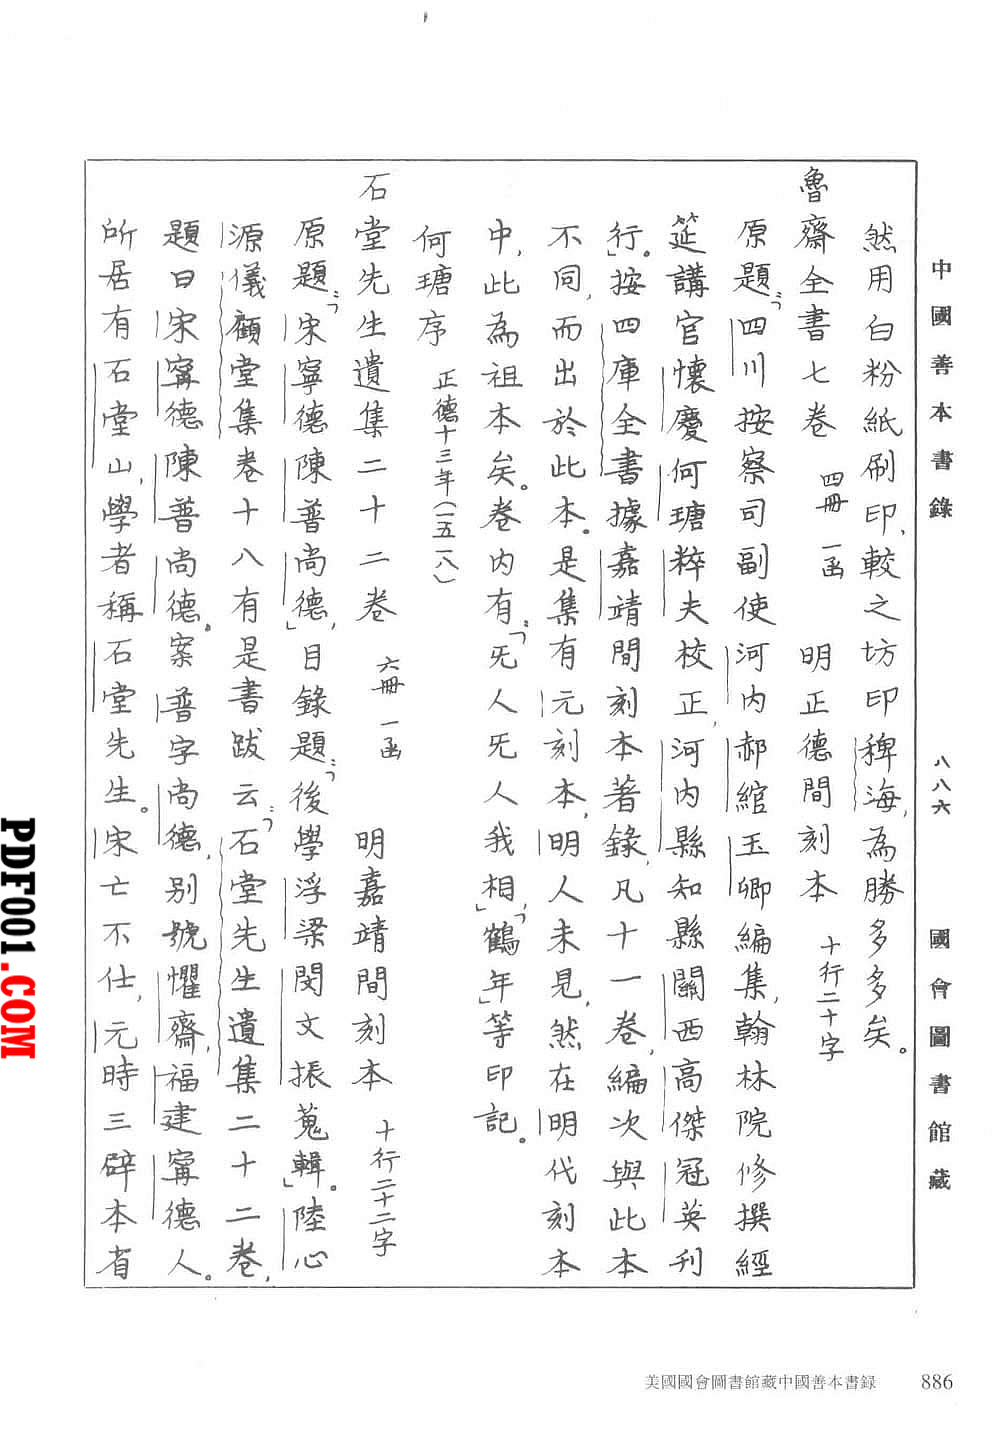 中國善本書錄 八八六 國會圖書館藏
然用白粉紙刷印，較之坊印稗海，為勝多多矣。
魯齋全書七卷 四冊 一函 明正德間刻本 十行二十字
原題：「四川按察司副使河內郝綰玉卿編集，翰林院修撰經
筵講官懷慶何瑭粹夫校正，河內縣知縣關西高傑冠英刊
行」。按四庫全書據嘉靖間刻本著錄，凡十一卷，編次與此本
不同，而出於此本。是集有元刻本，明人未見，然在明代刻本
中，此為祖本矣。卷內有：「旡人旡人我相」，「鶴年」等印記。
何瑭序 正德十三年（一五一八）
石堂先生遺集二十二卷 六冊 一函 明嘉靖間刻本 十行二十二字
原題：「宋寧德陳普尚德」，目錄題：「後學浮梁閔文振蒐輯」。陸心
源儀顧堂集卷十八有是書跋云：「石堂先生遺集二十二卷，
題曰宋寧德陳普尚德。案普字尚德，別號懼齋，福建寧德人。
所居有石堂山，學者稱石堂先生。宋亡不仕，元時三辟本省
美國國會圖書館藏中國善本書録 886
PDF001.COM